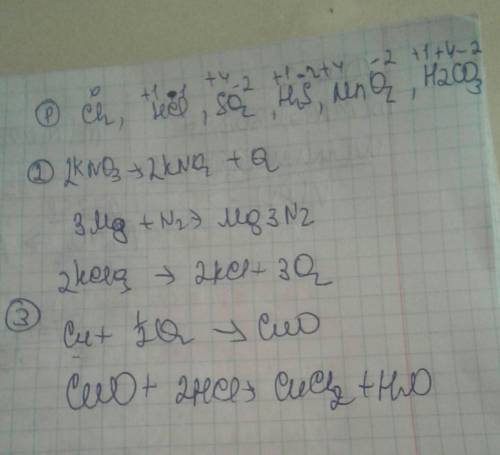 ① Cl₂⁰, H⁺¹Cl⁻¹, S⁺⁴O₂⁻², H₂⁺¹S⁻², Mn⁺⁴O₂⁻², H₂⁺¹C⁺⁴O₃⁻²
② 2KNO₃ → 2KNO₂ + O₂
3Mg + N₂ → Mg3N2
2KClO₃ → 2KCl + 3O₂
③ Cu + ½O₂ → CuO
CuO + 2HCl → CuCl₂ + H₂O